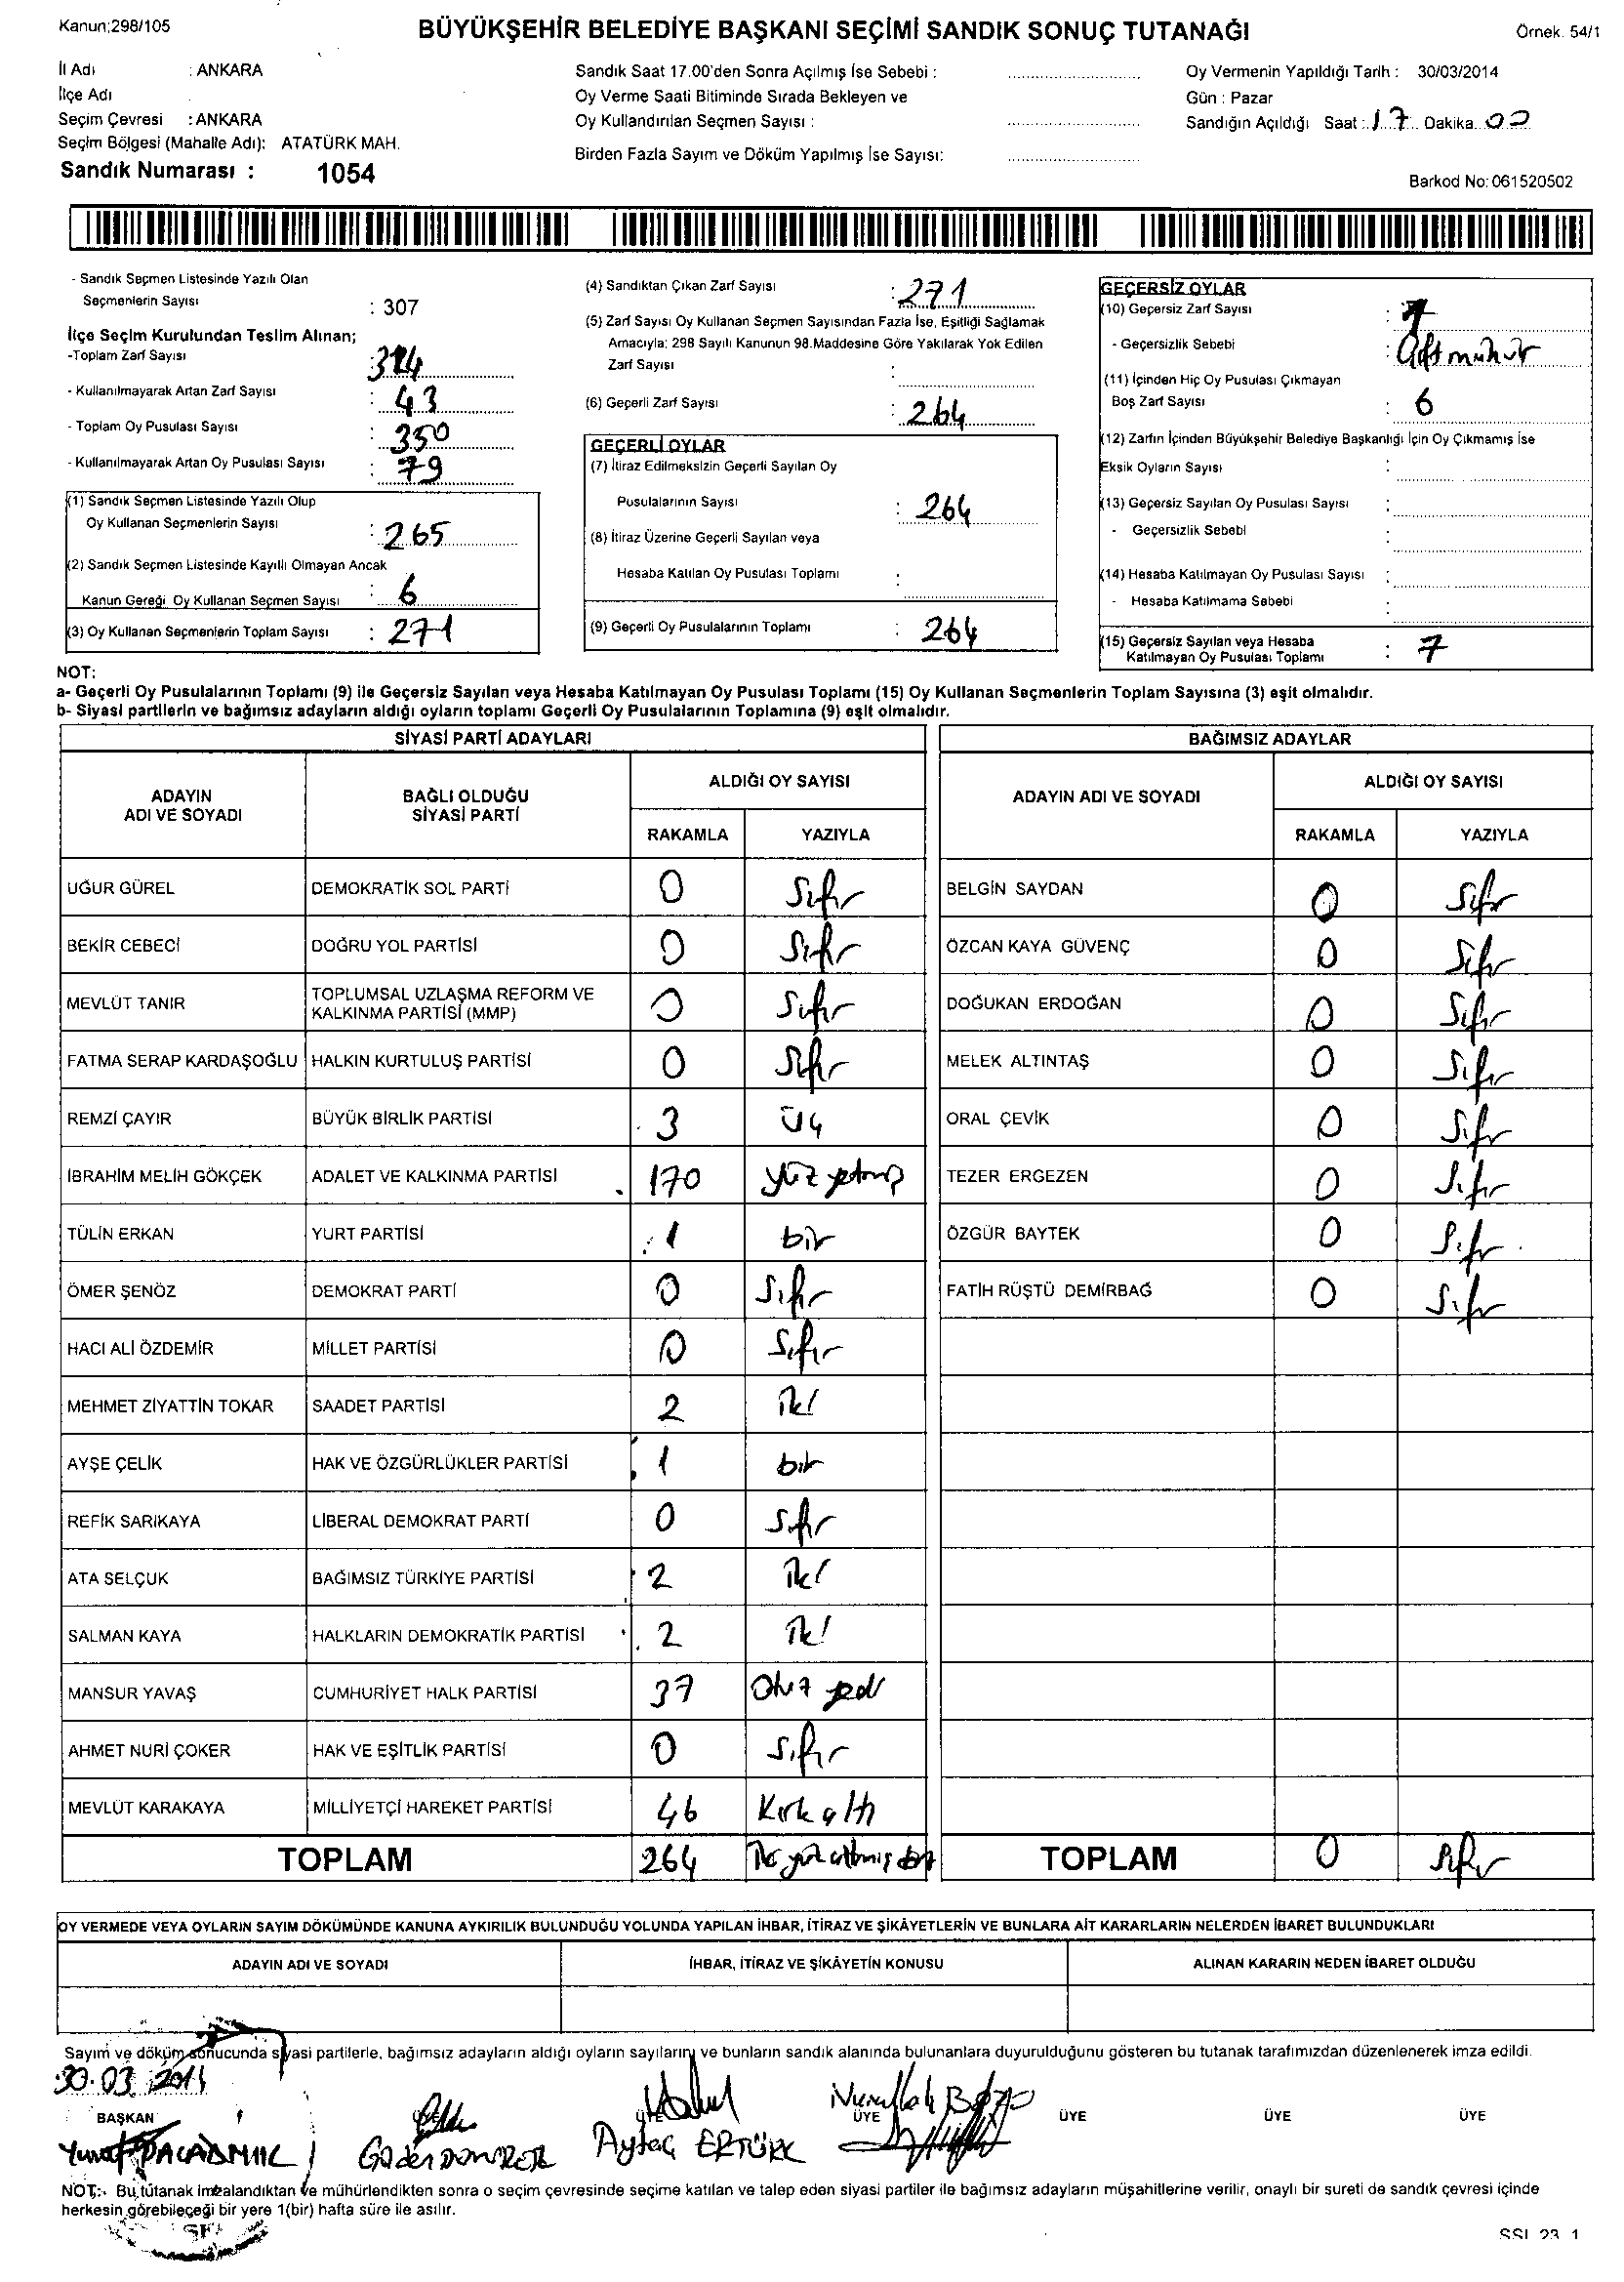 Kanun;298/105
BÜYÜKŞEHİR BELEDİYE BAŞKANI SEÇİMİ SANDIK SONUÇ TUTANAĞI
Örnek. 54/1
İl Adı : ANKARA
İlçe Adı
Seçim Çevresi : ANKARA
Seçim Bölgesi (Mahalle Adı): ATATÜRK MAH.
Sandık Numarası : 1054
Sandık Saat 17.00'den Sonra Açılmış İse Sebebi :
Oy Verme Saati Bitiminde Sırada Bekleyen ve
Oy Kullandırılan Seçmen Sayısı :
Birden Fazla Sayım ve Döküm Yapılmış İse Sayısı:
Oy Vermenin Yapıldığı Tarih : 30/03/2014
Gün : Pazar
Sandığın Açıldığı Saat : 17 Dakika 00
Barkod No: 061520502
- Sandık Seçmen Listesinde Yazılı Olan
Seçmenlerin Sayısı : 307
İlçe Seçim Kurulundan Teslim Alınan;
-Toplam Zarf Sayısı : 314
- Kullanılmayarak Artan Zarf Sayısı : 43
- Toplam Oy Pusulası Sayısı : 350
- Kullanılmayarak Artan Oy Pusulası Sayısı : 79
(1) Sandık Seçmen Listesinde Yazılı Olup
Oy Kullanan Seçmenlerin Sayısı : 265
(2) Sandık Seçmen Listesinde Kayıtlı Olmayan Ancak
Kanun Gereği Oy Kullanan Seçmen Sayısı : 6
(3) Oy Kullanan Seçmenlerin Toplam Sayısı : 271
(4) Sandıktan Çıkan Zarf Sayısı : 271
(5) Zarf Sayısı Oy Kullanan Seçmen Sayısından Fazla İse, Eşitliği Sağlamak
Amacıyla; 298 Sayılı Kanunun 98.Maddesine Göre Yakılarak Yok Edilen
Zarf Sayısı :
(6) Geçerli Zarf Sayısı : 264
GEÇERLİ OYLAR
(7) İtiraz Edilmeksizin Geçerli Sayılan Oy
Pusulalarının Sayısı : 264
(8) İtiraz Üzerine Geçerli Sayılan veya
Hesaba Katılan Oy Pusulası Toplamı :
(9) Geçerli Oy Pusulalarının Toplamı : 264
GEÇERSİZ OYLAR
(10) Geçersiz Zarf Sayısı :
- Geçersizlik Sebebi : mühür
(11) İçinden Hiç Oy Pusulası Çıkmayan
Boş Zarf Sayısı : 6
(12) Zarfın İçinden Büyükşehir Belediye Başkanlığı İçin Oy Çıkmamış İse
Eksik Oyların Sayısı :
(13) Geçersiz Sayılan Oy Pusulası Sayısı :
- Geçersizlik Sebebi :
(14) Hesaba Katılmayan Oy Pusulası Sayısı :
- Hesaba Katılmama Sebebi :
(15) Geçersiz Sayılan veya Hesaba
Katılmayan Oy Pusulası Toplamı : 7
NOT:
a- Geçerli Oy Pusulalarının Toplamı (9) ile Geçersiz Sayılan veya Hesaba Katılmayan Oy Pusulası Toplamı (15) Oy Kullanan Seçmenlerin Toplam Sayısına (3) eşit olmalıdır.
b- Siyasi partilerin ve bağımsız adayların aldığı oyların toplamı Geçerli Oy Pusulalarının Toplamına (9) eşit olmalıdır.
SİYASİ PARTİ ADAYLARI
ADAYIN ADI VE SOYADI
BAĞLI OLDUĞU SİYASİ PARTİ
ALDIĞI OY SAYISI
RAKAMLA YAZIYLA
UĞUR GÜREL DEMOKRATİK SOL PARTİ 0 Sıfır
BEKİR CEBECİ DOĞRU YOL PARTİSİ 0 Sıfır
MEVLÜT TANIR TOPLUMSAL UZLAŞMA REFORM VE KALKINMA PARTİSİ (MMP) 0 Sıfır
FATMA SERAP KARDAŞOĞLU HALKIN KURTULUŞ PARTİSİ 0 Sıfır
REMZİ ÇAYIR BÜYÜK BİRLİK PARTİSİ 3 Üç
İBRAHİM MELİH GÖKÇEK ADALET VE KALKINMA PARTİSİ 170 yüz yetmiş
TÜLİN ERKAN YURT PARTİSİ 1 bir
ÖMER ŞENÖZ DEMOKRAT PARTİ 0 Sıfır
HACI ALİ ÖZDEMİR MİLLET PARTİSİ 0 Sıfır
MEHMET ZİYATTİN TOKAR SAADET PARTİSİ 2 İki
AYŞE ÇELİK HAK VE ÖZGÜRLÜKLER PARTİSİ 1 bir
REFİK SARIKAYA LİBERAL DEMOKRAT PARTİ 0 Sıfır
ATA SELÇUK BAĞIMSIZ TÜRKİYE PARTİSİ 2 İki
SALMAN KAYA HALKLARIN DEMOKRATİK PARTİSİ 2 İki
MANSUR YAVAŞ CUMHURİYET HALK PARTİSİ 37 Otuz yedi
AHMET NURİ ÇOKER HAK VE EŞİTLİK PARTİSİ 0 Sıfır
MEVLÜT KARAKAYA MİLLİYETÇİ HAREKET PARTİSİ 46 Kırk altı
TOPLAM 264 İki yüz altmış dört
BAĞIMSIZ ADAYLAR
ADAYIN ADI VE SOYADI
ALDIĞI OY SAYISI
RAKAMLA YAZIYLA
BELGİN SAYDAN 0 Sıfır
ÖZCAN KAYA GÜVENÇ 0 Sıfır
DOĞUKAN ERDOĞAN 0 Sıfır
MELEK ALTINTAŞ 0 Sıfır
ORAL ÇEVİK 0 Sıfır
TEZER ERGEZEN 0 Sıfır
ÖZGÜR BAYTEK 0 Sıfır
FATİH RÜŞTÜ DEMİRBAĞ 0 Sıfır
TOPLAM 0 Sıfır
OY VERMEDE VEYA OYLARIN SAYIM DÖKÜMÜNDE KANUNA AYKIRILIK BULUNDUĞU YOLUNDA YAPILAN İHBAR, İTİRAZ VE ŞİKÂYETLERİN VE BUNLARA AİT KARARLARIN NELERDEN İBARET BULUNDUKLARI
ADAYIN ADI VE SOYADI İHBAR, İTİRAZ VE ŞİKÂYETİN KONUSU ALINAN KARARIN NEDEN İBARET OLDUĞU
Sayım ve döküm sonucunda siyasi partilerle, bağımsız adayların aldığı oyların sayılarını ve bunların sandık alanında bulunanlara duyurulduğunu gösteren bu tutanak tarafımızdan düzenlenerek imza edildi.
30.03.2014
BAŞKAN ÜYE ÜYE ÜYE ÜYE ÜYE
Aytaç ERTÜRK
Nurullah
NOT:- Bu tutanak imzalandıktan ve mühürlendikten sonra o seçim çevresinde seçime katılan ve talep eden siyasi partiler ile bağımsız adayların müşahitlerine verilir, onaylı bir sureti de sandık çevresi içinde
herkesin görebileceği bir yere 1(bir) hafta süre ile asılır.